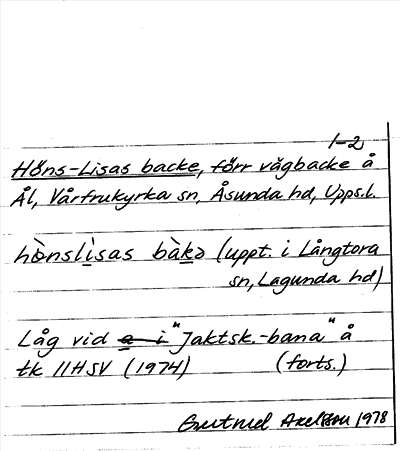 1-2
Höns-Lisas backe, förr vägbacke å
Ål, Vårfrukyrka sn, Åsunda hd, Upps.l.
hònslìsas bàkə (uppt. i Långtora
sn, Lagunda hd)
Låg vid a i "Jaktsk.-bana" å
tk 11HSV (1974) (forts.)
Gertrud Axelsson 1978